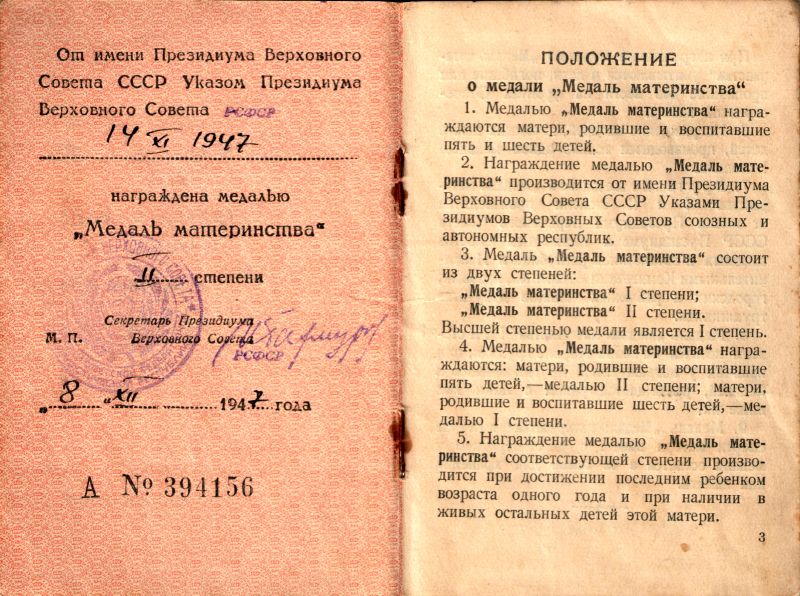 От имени Президиума Верховного
Совета СССР Указом Президиума
Верховного Совета РСФСР
14 XI 1947
награждена медалью
„Медаль материнства“
II степени
Секретарь Президиума
М. П. Верховного Совета
РСФСР
„8 “ XII 1947 года
А № 394156
ПОЛОЖЕНИЕ
о медали „Медаль материнства“
1. Медалью „Медаль материнства“ награ-
ждаются матери, родившие и воспитавшие
пять и шесть детей.
2. Награждение медалью „Медаль мате-
ринства“ производится от имени Президиума
Верховного Совета СССР Указами Пре-
зидиумов Верховных Советов союзных и
автономных республик.
3. Медаль „Медаль материнства“ состоит
из двух степеней:
„Медаль материнства“ I степени;
„Медаль материнства“ II степени.
Высшей степенью медали является I степень.
4. Медалью „Медаль материнства“ награ-
ждаются: матери, родившие и воспитавшие
пять детей,—медалью II степени; матери,
родившие и воспитавшие шесть детей,—ме-
далью I степени.
5. Награждение медалью „Медаль мате-
ринства“ соответствующей степени произво-
дится при достижении последним ребенком
возраста одного года и при наличии в
живых остальных детей этой матери.
3